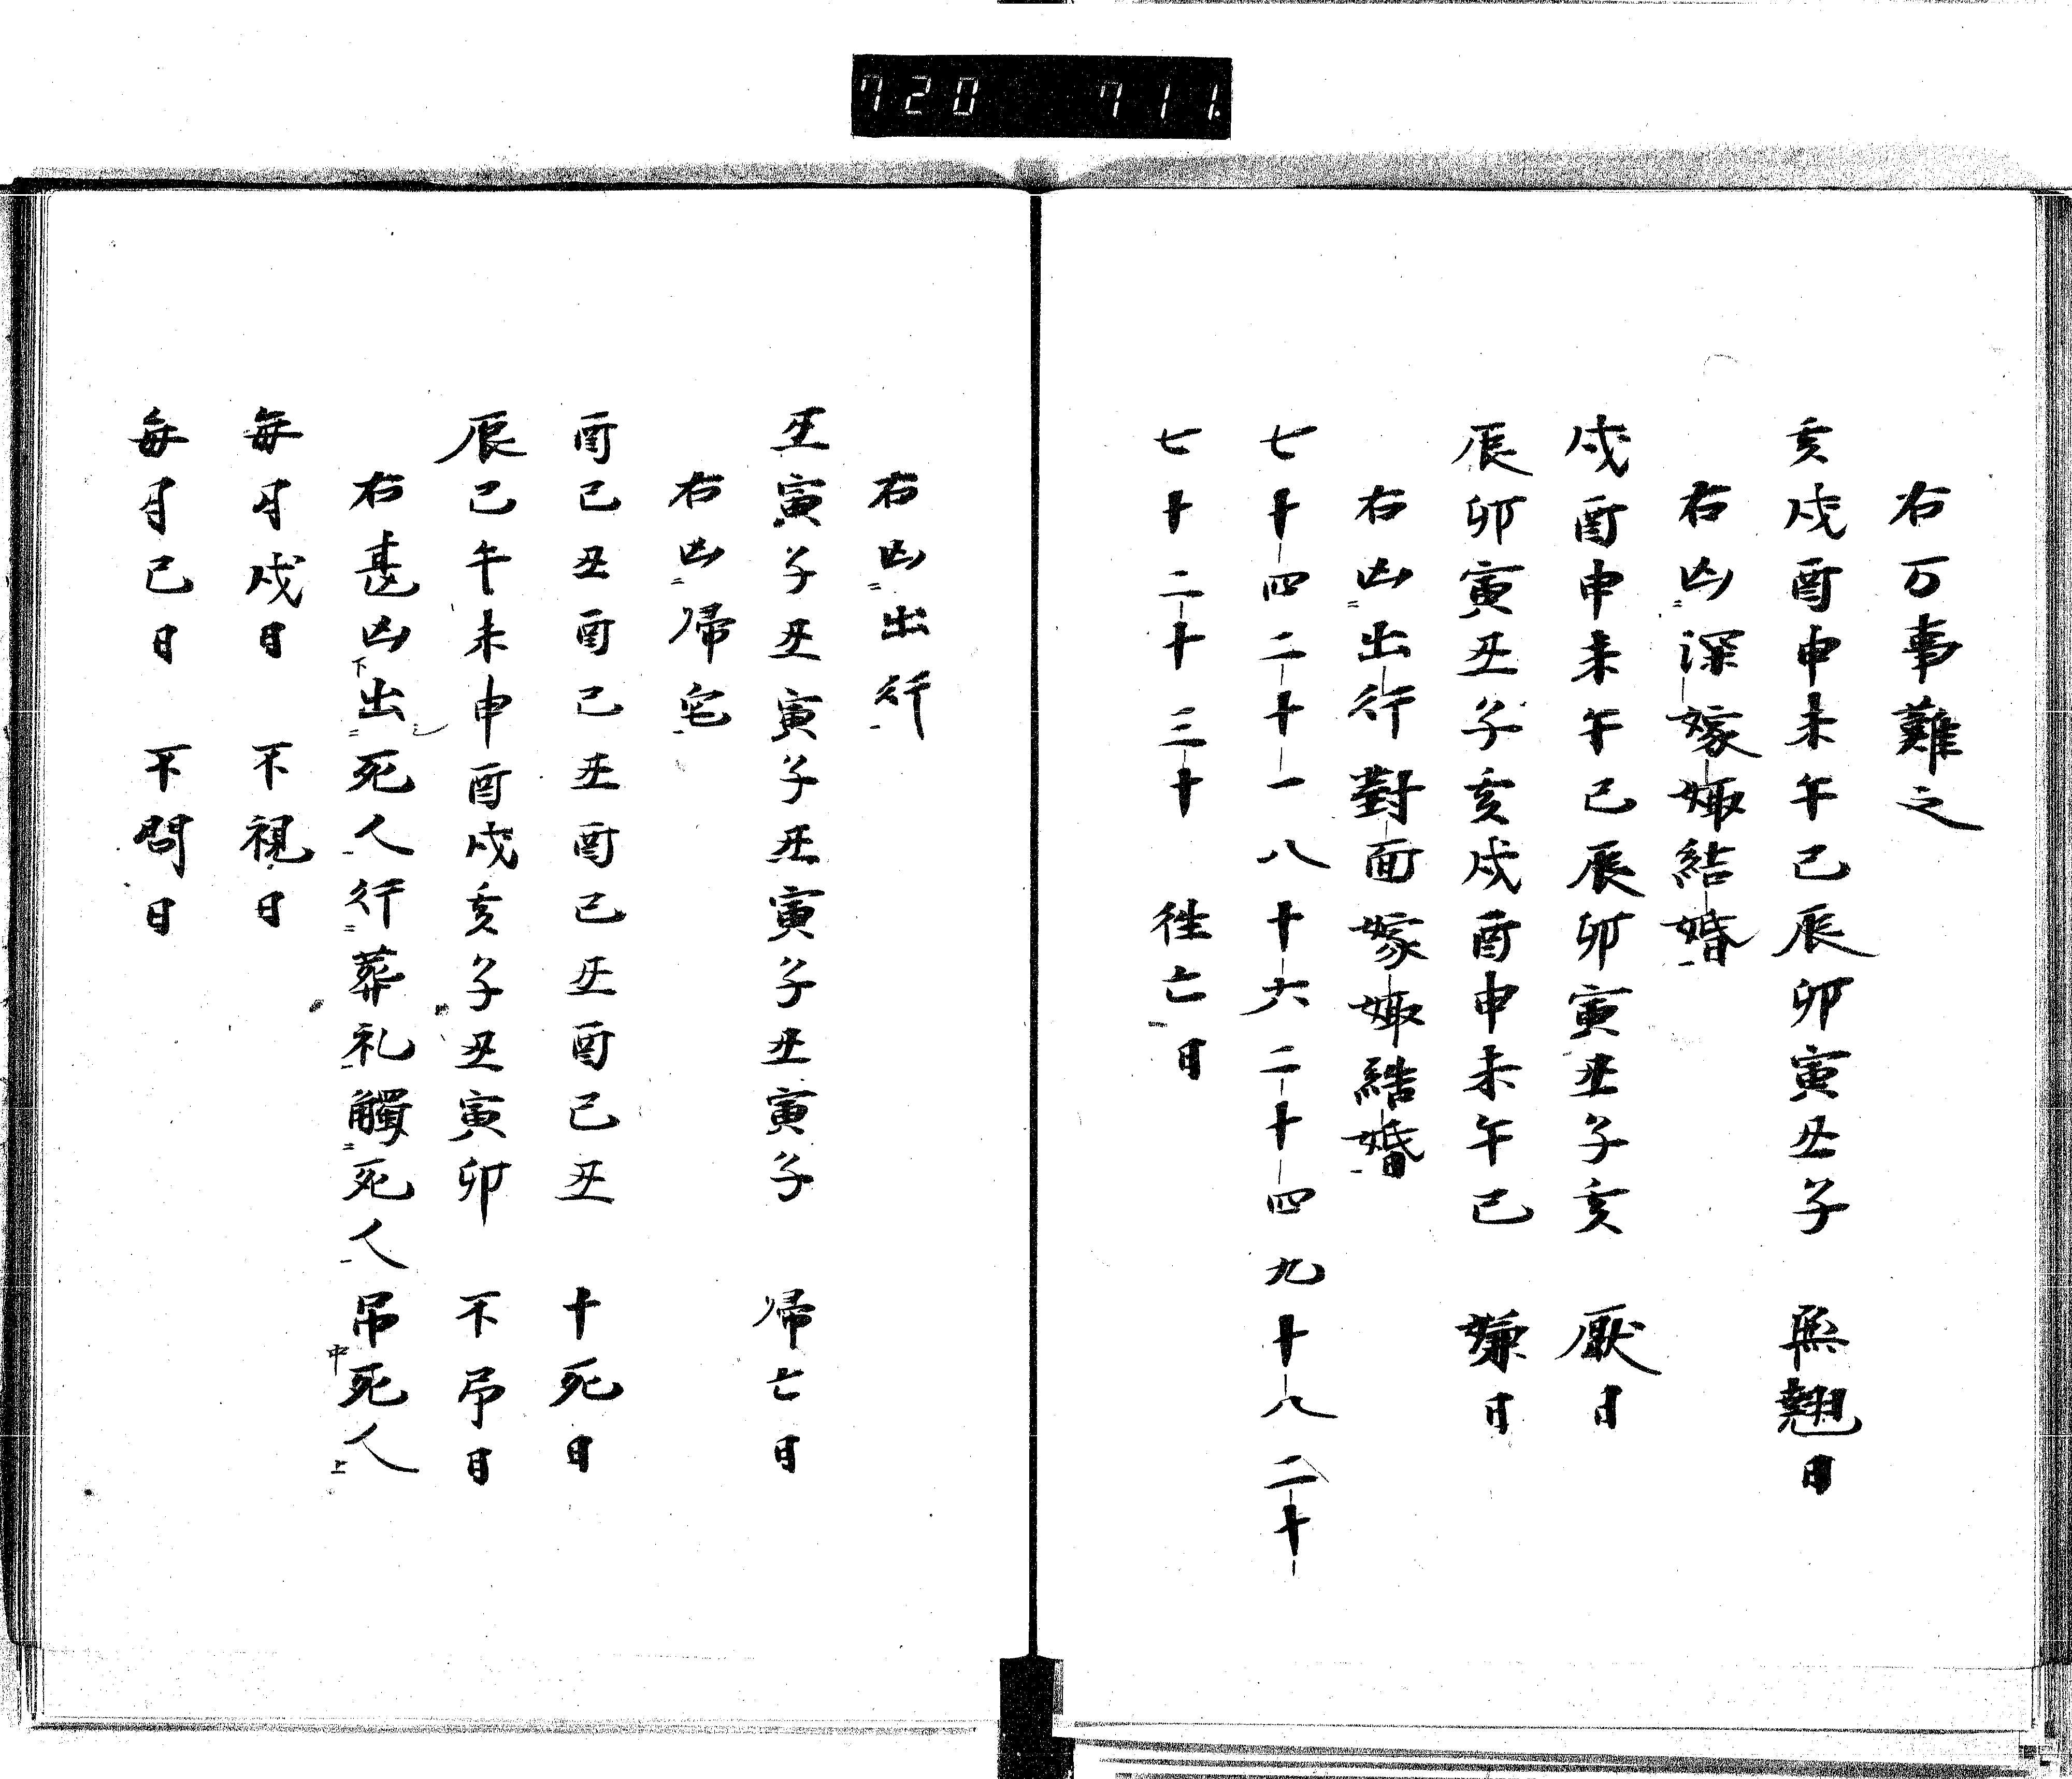 720 711
右万事難之
亥戌酉申未午巳辰卯寅丑子 無翹日
右凶深嫁娵結婚
戌酉申未午巳辰卯寅丑子亥 厭日
辰卯寅丑子亥戌酉申未午巳 嫌日
右凶出行對面嫁娵結婚
七十四二十一八十六二十四九十八二十
七十二十三十 往亡日
右凶出行
丑寅子丑寅子丑寅子丑寅子 帰亡日
右凶帰宅
酉巳丑酉巳丑酉巳丑酉巳丑 十死日
辰巳午未申酉戌亥子丑寅卯 不吊日
右甚凶下出二死人一行二葬礼一觸二死人一吊中死人上
毎月戌日 不視日
毎月巳日 不問日